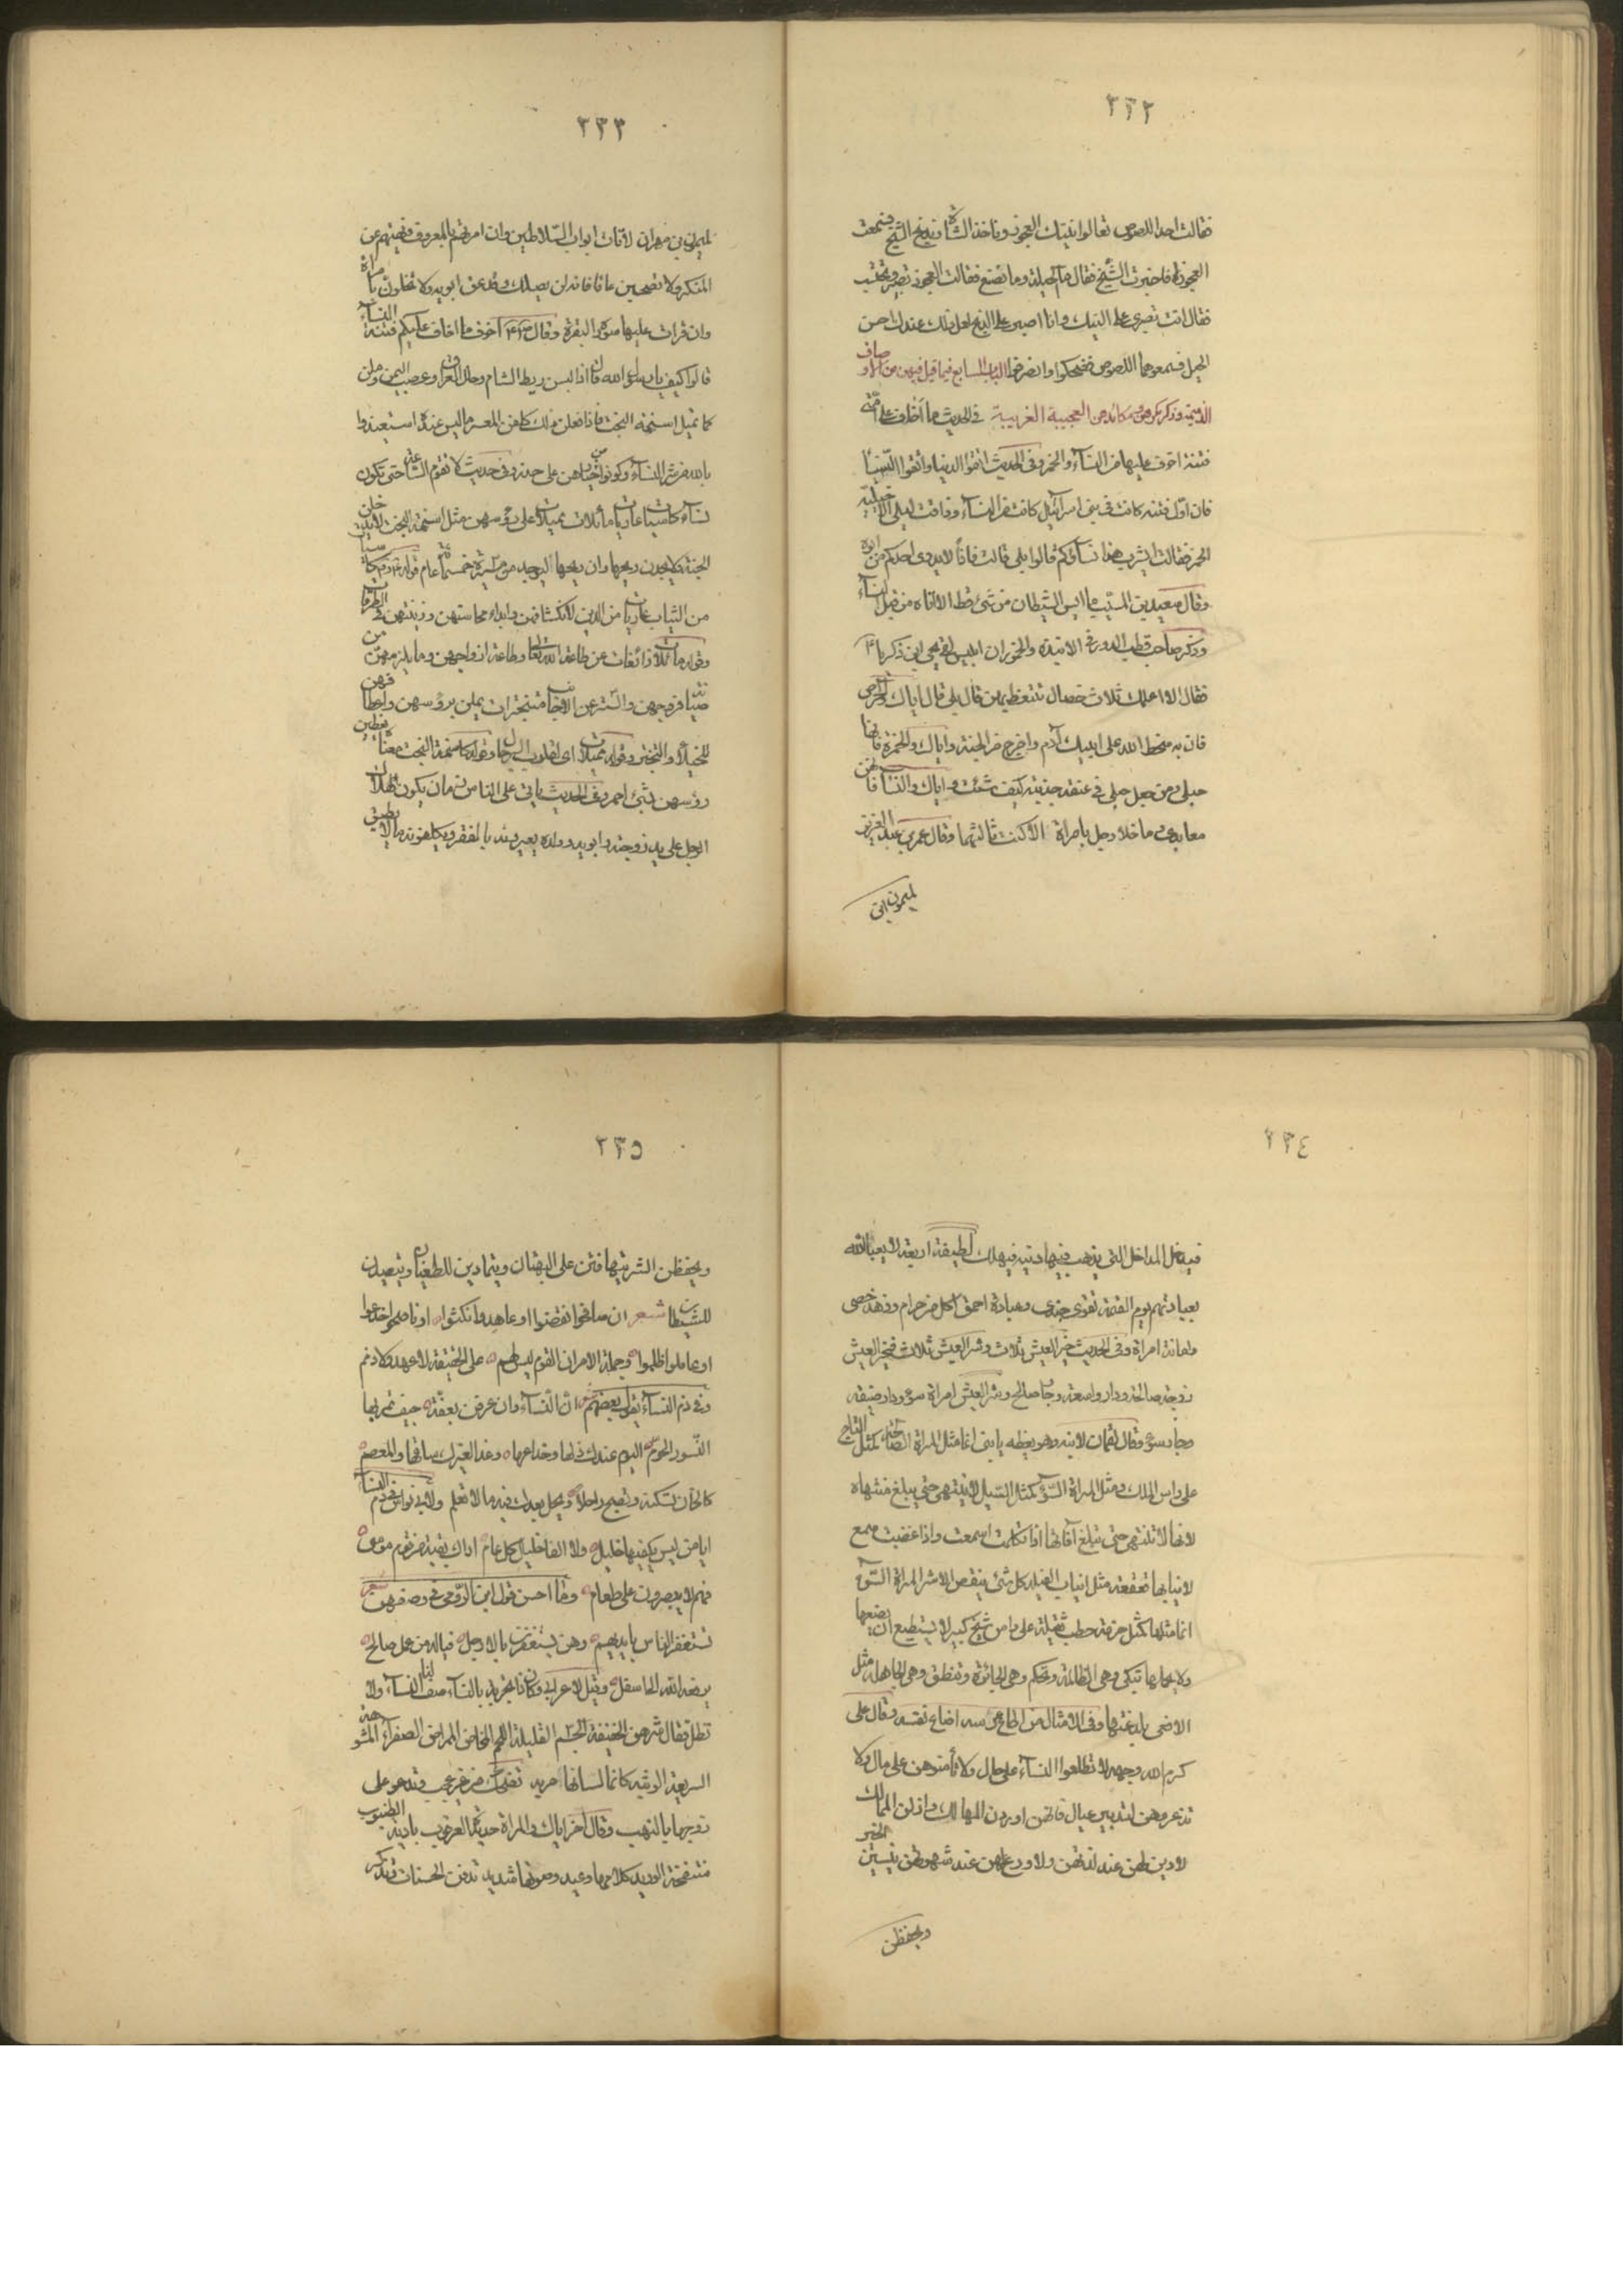 ٢٣٢
فقالت احد اللصوص تعالوا ننيك العجوز وناخذ الشاة ونذبح الشيخ فسمعت
العجوزة فاخبرت الشيخ فقال ما الحيلة وما نصنع فقالت العجوز نصبر ونحتسب
فقال انت تصبري على النيك وانا اصبر على الذبح لعل ذلك عندك احسن
الحيل فسمعوهما اللصوص فضحكوا وانصرفوا الباب السابع فيما قيل فيهن من الاوصاف
الذميمة وذكر مكرهن ومكائدهن العجيبة الغريبة في الحديث ما اخاف على امتي
فتنة اخوف عليها من النسآء والخمر وفي الحديث اتقوا الدنيا واتقوا النسآ
فان اول فتنة كانت في بني اسرآئيل كانت من النسآء وذاقت ليلى الاخيلية
الخمر فقالت ايشرب هذا نسآؤكم قالوا بلى قالت فاذًا لا يدري احدكم من ابوه
وقال سعيد بن المسيب ما ايس الشيطان من شيء قط الا اتاه من قبل النسآء
وذكر صاحب قطب السرور في الانبذة والخمور ان ابليس لقي يحيى ابن زكريا ؑ
فقال الا اعلمك ثلاث خصال تتعظ بهن قال بلى قال اياك والحرص
فان به سخط الله على ابيك آدم واخرج من الجنة واياك والخمرة فانها
حبلي ومن جعل حبلي في عنقه جذبته كيف شئت واياك والنسآ فانهن
معابدي ما خلا رجل بامراة الا كنت ثالثهما وقال عمر بن عبد العزيز
لميمون ابن
٢٣٣
لميمون بن مهران لا تات ابواب السلاطين وان امرتهم بالمعروف ونهيتهم عن
المنكر ولا تصحبن عاقا فانه لن يصلك وقد عق ابويه ولا تخلون بامراة
وان قرات عليها سورة البقرة وقال ؑ اخوف ما اخاف عليكم فتنة النسآء
قالوا كيف يا رسول الله قال اذا لبسن ريط الشام وحلل العراق وعصب اليمن وملن
كما تميل اسنمة البخت فاذا فعلن ذلك كلفن المعسر ما ليس عنده استعيذوا
بالله من شر النسآء وكونوا من خيارهن على حذر وفي حديث لا تقوم الساعة حتى تكون
نسآء كاسيات عاريات مائلات مميلات على رؤسهن مثل اسنمة البخت لا يدخلن
الجنة ولا يجدن ريحها وان ريحها ليوجد من مسيرة خمسمائة عام قوله كاسيات
من الثياب عاريات من الدين لانكشافهن وابداء محاسنهن وزينتهن في الطرقات
وقوله مائلات زائغات عن طاعة الله تعالى وطاعة ازواجهن وما يلزمهن من
صيانة فروجهن والستر عن الاجانب متبخترات يملن برؤسهن واعطافهن
للخيلاء والتبختر وقوله مميلات اي لقلوب الرجال وقوله كاسنمة البخت معناه يغطين
رؤسهن بشيء احمر وفي الحديث ياتي على الناس زمان يكون هلاك
الرجل على يد زوجته وابويه وولده يعيرونه بالفقر ويكلفونه ما لا يطيق
٢٣٤
فيدخل المداخل التي يذهب فيها دينه فيهلك لطيفة اربعة لا يعبأ الله
بعبادتهم يوم القيمة تقوى جندي وعبادة احمق اكل من حرام وزهد خصي
وامانة امراة وفي الحديث خير العيش ثلاث وشر العيش ثلاث فخير العيش
زوجة صالحة ودار واسعة وجار صالح وشر العيش امراة سوء ودار ضيقة
وجار سوء وقال لقمان لابنه وهو يعظه يا بني انما مثل المراة الصالحة كمثل التاج
على راس الملك ومثل المراة السوء كمثل السيل لا ينتهي حتى يبلغ منتهاه
لانها لا تنتهي حتى تبلغ آفاتها اذا تكلمت اسمعت واذا غضبت سمع
لانيابها قعقعة مثل انياب الفيلة كل شيء ينقص الا شر المراة السوء
انما مثلها كمثل حزمة حطب ثقيلة على راس شيخ كبير لا يستطيع ان يضعها
ولا يحملها تبكي وهي الظالمة وتحكم وهي الجائرة وتنطق وهي الجاهلة مثل
الافعى بلدغتها وفي الامثال من اطاع عرسه اضاع نفسه وقال علي
كرم الله وجهه لا تطلعوا النسآء على حال ولا تأمنوهن على مال ولا
تذروهن لتدبير عيال فانهن اوردن المهالك وازلن الممالك
لا دين لهن عند لذتهن ولا ورع لهن عند شهوتهن ينسين الخير
ويحفظن
٢٣٥
ويحفظن الشر يتهافتن على البهتان ويتمادين للطغيان ويتصدين
للشيطان شعر ان صافحوا نقضوا او عاهدوا نكثوا او ناصحوا خدعوا
او عاملوا ظلموا وجملة الامر ان القوم ليس لهم على الحقيقة لا عهد ولا ذمم
وفي ذم النسآء يقول بعضهم ان النسآء وان عرفن بعفة جيف تمر بها
النسور الحوم اليوم عندك دلها وخداعها وغدا لغيرك ساقها والمعصم
كالخان تسكنه وتصبح راحلا ويحل بعدك فيه ما لا تعلم ولابي نواس في ذم النسآ
ايا من ليس يكفيها خليل ولا الفا خليل كل عام اراك بقية من قوم موسى
فهم لا يصبرون على طعام وما احسن قول ابن الرومي في وصفهن شعر
تستغفر الناس بايديهم وهن يستغفرن بالارجل فياله من عمل صالح
يرفعه الله الى اسفل وقيل لاعرابي وكان ذا تجربة بالنسآء صف لنا النسآء ولا
تطل فقال شرهن الخفيفة الجسم القليلة اللحم المخاض الممراض الصفراء المشؤمة
السريعة الوثبة كان لسانها حربة تضحك من غير عجب وتدعو على
زوجها بالذهب وقال آخر اياك والمراة حديدة العرقوب بادية الظنبوب
منتفخة الوريد كلامها وعيد وصوتها شديد تدفن الحسنات وتذكر